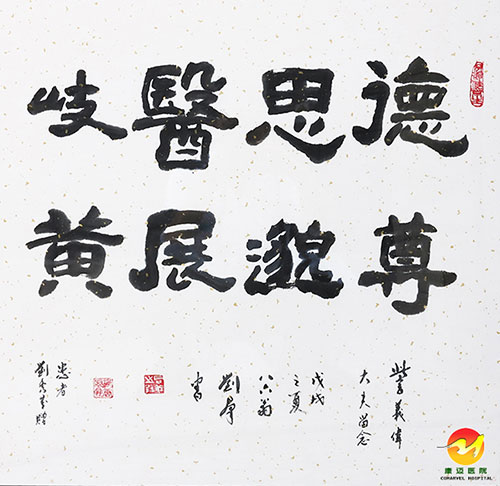 德尊
思邈
醫展
岐黄
義偉
大夫留念
戊戌
之夏
八六翁
劉
書
患者
劉
康迈医院
COMARVEL HOSPITAL